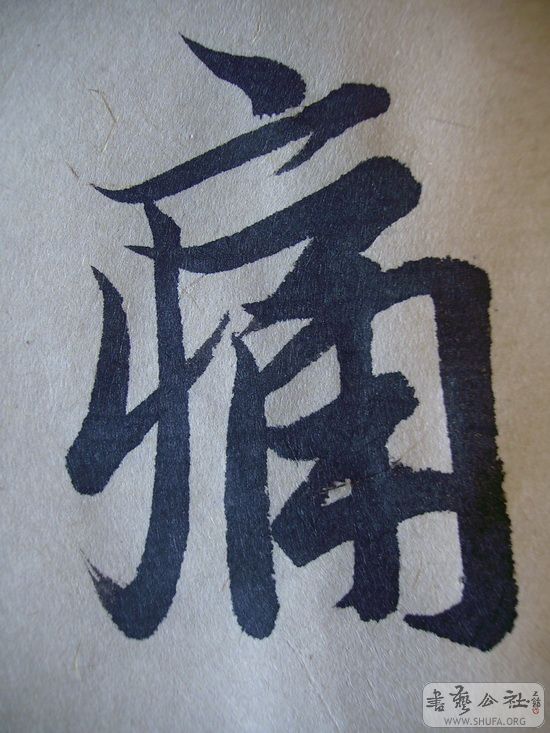 痛
書藝公社
WWW.SHUFA.ORG